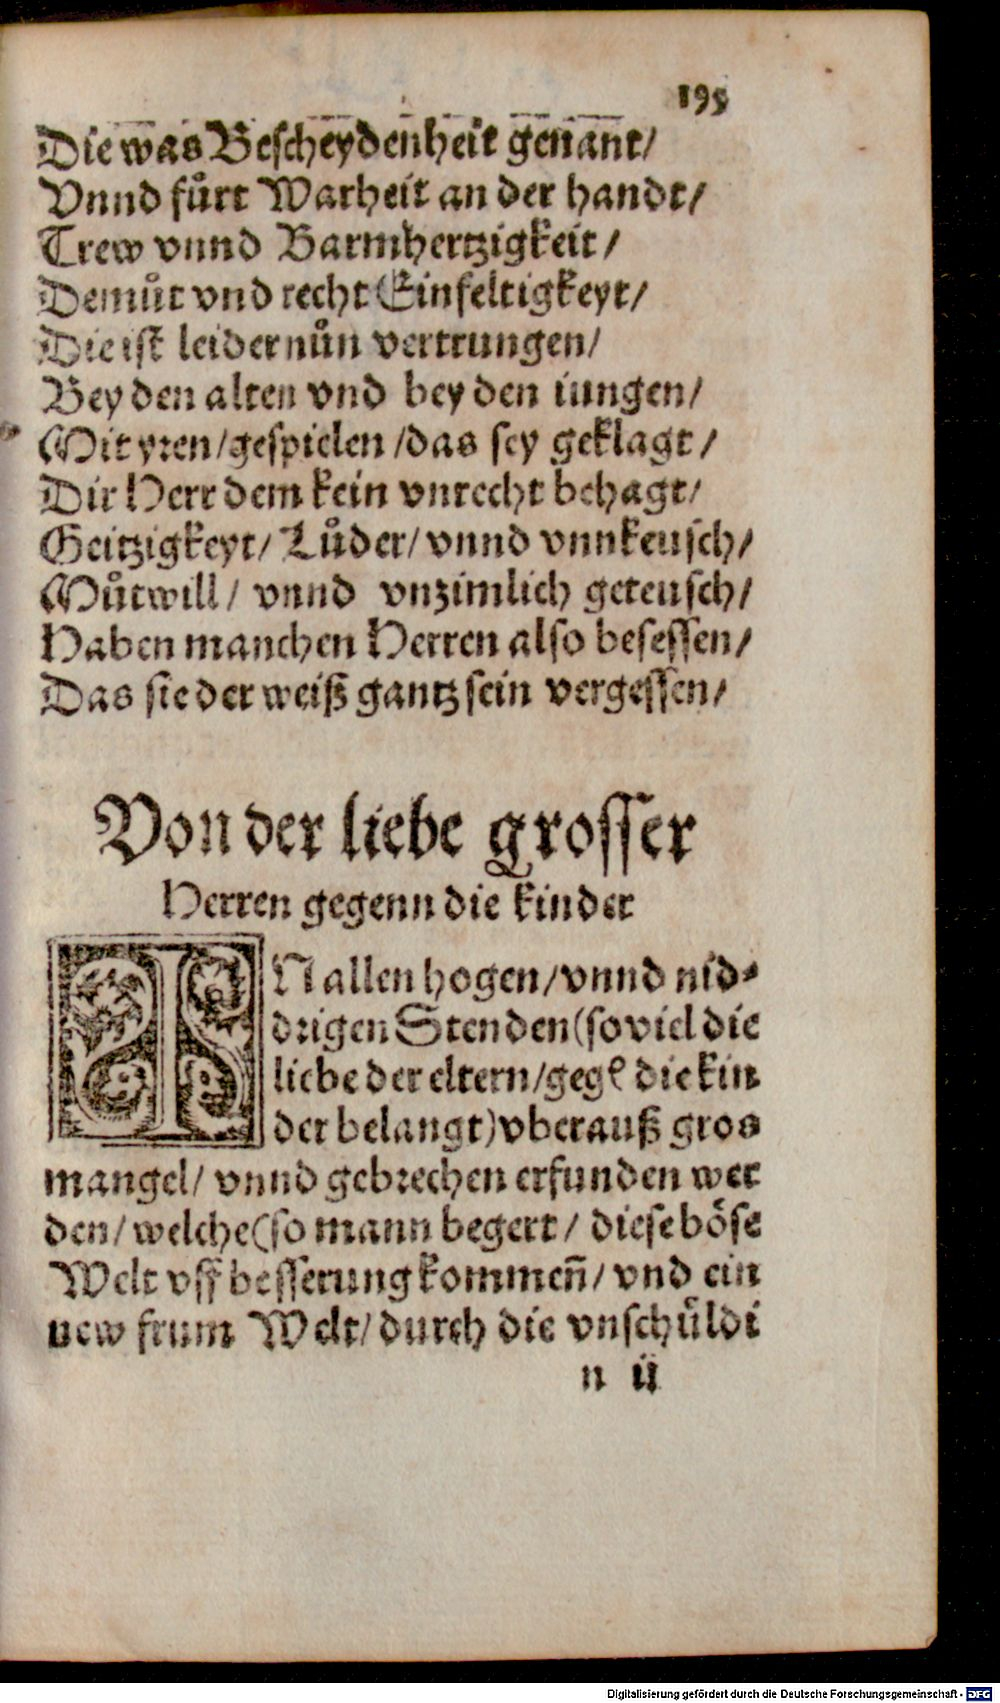 195
Die was Bescheydenheit genant/
Vnnd fůrt Warheit an der handt/
Trew vnnd Barmhertzigkeit/
Demůt vnd recht Einfeltigkeyt/
Die ist leider nůn vertrungen/
Bey den alten vnd bey den iungen/
Mit yren/gespielen/das sey geklagt/
Dir Herr dem kein vnrecht behagt/
Geitzigkeyt/ Lůder/ vnnd vnnkeusch/
Můtwill/ vnnd vnzimlich geteusch/
Haben manchen Herren also besessen/
Das sie der weiß gantz sein vergessen/
Von der liebe grosser
Herren gegenn die kinder
IN allen hogen/vnnd nid-
drigen Stenden(so viel die
liebe der eltern/gegē die kin
der belangt)vberauß gros
mangel/ vnnd gebrechen erfunden wer
den/ welche(so mann begert/ diese böse
Welt vff besserung kommen̄/ vnd ein
new frum Welt/ durch die vnschüldi
n ij
Digitalisierung gefördert durch die Deutsche Forschungsgemeinschaft - DFG